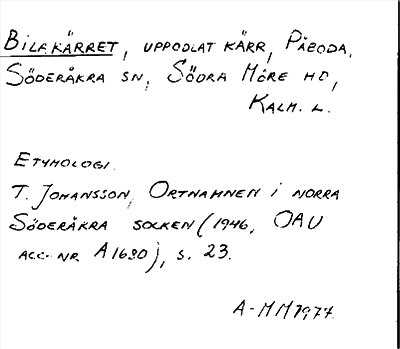 BILAKÄRRET, UPPODLAT KÄRR, PÅBODA,
SÖDERÅKRA SN, SÖDRA MÖRE HD,
KALM. L.
ETYMOLOGI.
T. JOHANSSON, ORTNAMNEN I NORRA
SÖDERÅKRA SOCKEN (1946, OAU
ACC. NR A1680), S. 23.
A-MM 1974